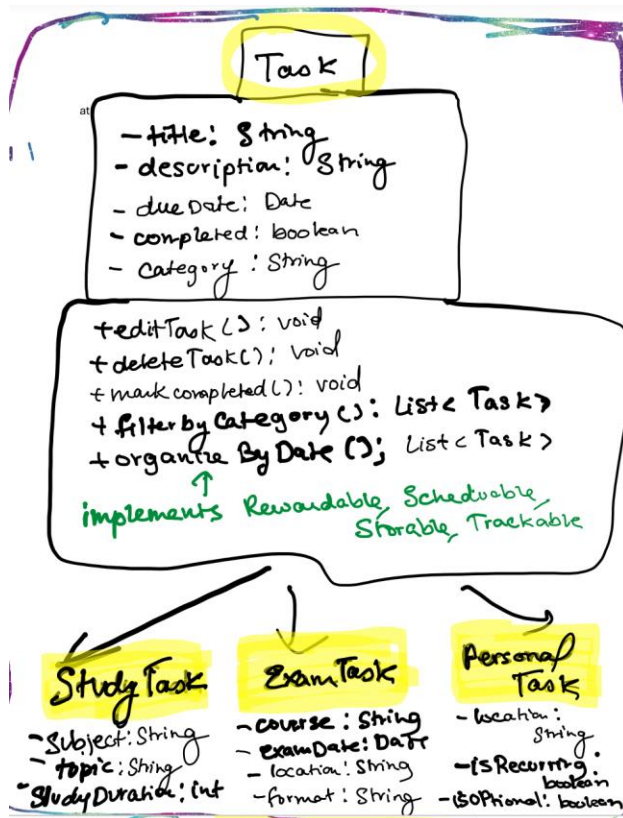 Task
at
- title: String
- description: String
- dueDate: Date
- completed: boolean
- category: String
+editTask(): void
+deleteTask(): void
+markcompleted(): void
+filterbyCategory(): List<Task>
+organize By Date(); List<Task>
implements Rewardable, Scheduable,
Storable, Trackable
StudyTask
- Subject: String
- topic: String
- StudyDuration: int
ExamTask
- course: String
- examDate: Date
- location: String
- format: String
Personal
Task
- location:
String
- isRecurring:
boolean
- isOptional: boolean